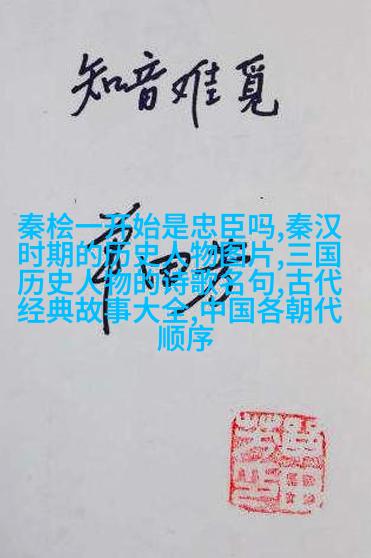 知音难觅
秦桧一开始是忠臣吗,秦汉
时期的历史人物图片,三国
历史人物的诗歌名句,古代
经典故事大全,中国各朝代
顺序
单田芳